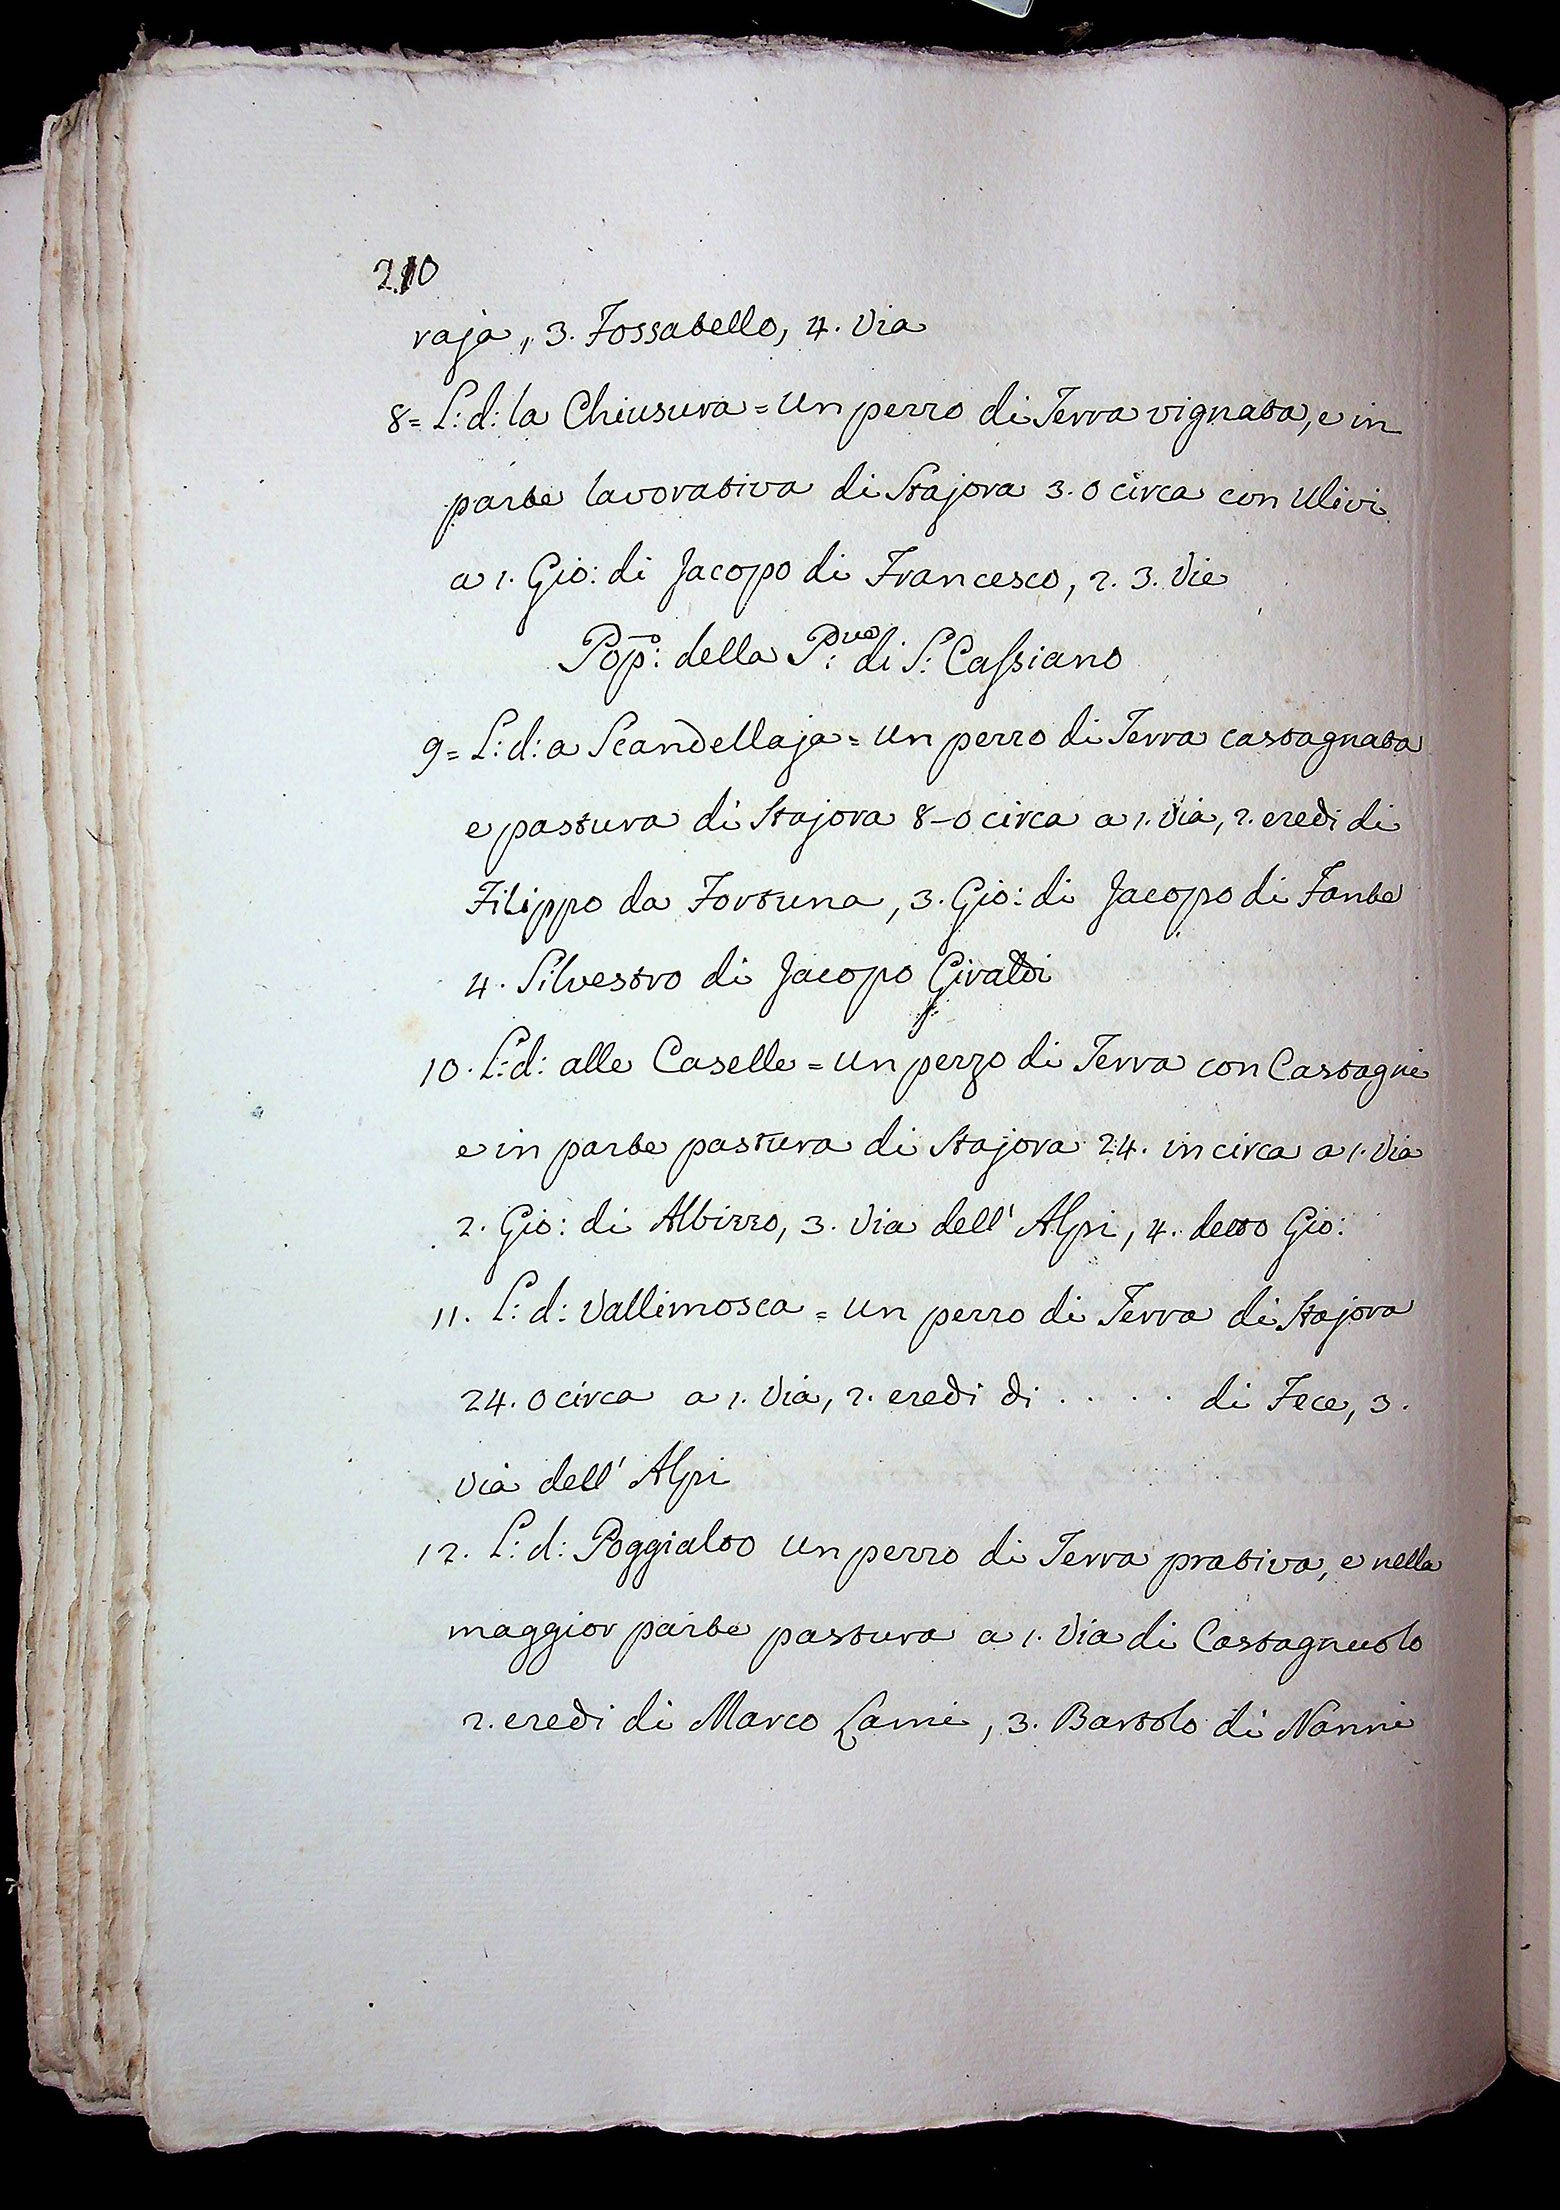 210
raja, 3. Fossatello, 4. Via
8= L: d: la Chiusura = un pezzo di Terra vignata, e in
parte lavorativa di Stajora 3.0 circa con Ulivi
a 1. Gio: di Jacopo di Francesco, 2. 3. Vie
Pop:º della P:ve di S: Cassiano
9= L: d: a Scandellaja = un pezzo di Terra castagnata
e pastura di Stajora 8-0 circa a 1. Via, 2. eredi di
Filippo da Fortuna, 3. Gio: di Jacopo di Fante
4. Silvestro di Jacopo Giraldi
10. L: d: alle Caselle = un pezzo di Terra con Castagni
e in parte pastura di Stajora 24. in circa a 1. Via
2. Gio: di Albizzo, 3. Via dell' Alpi, 4. detto Gio:
11. L: d: Vallimosca = un pezzo di Terra di Stajora
24.0 circa a 1. Via, 2. eredi di . . . . . di Fece, 3.
via dell' Alpi
12. L: d: Poggialto un pezzo di Terra prativa, e nella
maggior parte pastura a 1. Via di Castagnuolo
2. eredi di Marco Lami, 3. Bartolo di Nanni